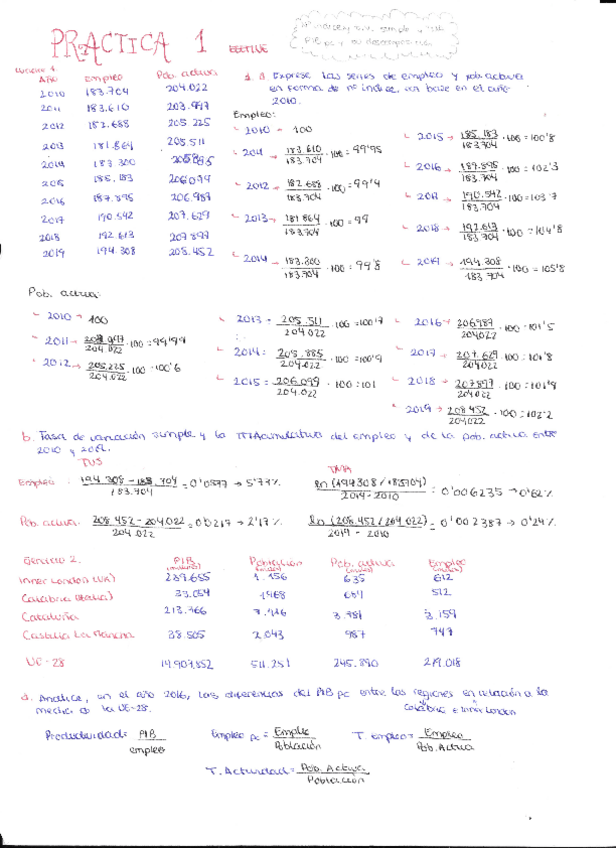 PRACTICA 1
Nº índices, TV simple y TVA
PIB pc y su descomposición.
Ejercicio 1
Año Empleo Pob. activa
2010 183.704 204.022
2011 183.610 203.997
2012 182.688 205.225
2013 181.864 205.511
2014 183.300 205.885
2015 185.183 206.099
2016 187.895 206.987
2017 190.542 207.629
2018 192.613 207.897
2019 194.308 208.452
1. a Exprese las series de empleo y pob. activa
en forma de nº índice, con base en el año
2010.
Empleo:
- 2010 - 100
- 2011 → 183.610/183.704 · 100 = 99'95
- 2012 → 182.688/183.704 · 100 = 99'4
- 2013 → 181.864/183.704 · 100 = 99
- 2014 → 183.300/183.704 · 100 = 99'8
- 2015 → 185.183/183.704 · 100 = 100'8
- 2016 → 187.895/183.704 · 100 = 102'3
→ 190.542/183.704 · 100 = 103'7
- 2018 → 192.613/183.704 · 100 = 104'8
- 2019 → 194.308/183.704 · 100 = 105'8
Pob. activa:
- 2010 → 100
- 2011 → 203.997/204.022 · 100 = 99'99
- 2012 → 205.225/204.022 · 100 = 100'6
- 2013 = 205.511/204.022 · 100 = 100'7
- 2014: 205.885/204.022 · 100 = 100'9
- 2015: 206.099/204.022 · 100 = 101
- 2016 → 206987/204022 · 100 = 101'5
- 2017 → 207.629/204.022 · 100 = 101'8
- 2018 → 207897/204022 · 100 = 101'9
- 2019 → 208.452/204.022 · 100 = 102'2
b. Tasa de variación simple y la TVAcumulativa del empleo y de la pob. activa entre
2010 y 2019.
TVS TVA
Empleo: 194.308 - 183.704/183.704 = 0'0577 → 5'77% ln(194308/183704)/2019-2010 = 0'006235 → 0'62%
Pob. activa: 208.452 - 204.022/204.022 = 0'0217 → 2'17% ln(208.452/204.022)/2019-2010 = 0'002387 → 0'24%
Ejercicio 2. PIB Población Pob. activa Empleo
Inner London (UK) 1.156 635 612
Calabria (Italia) 1968 512
Cataluña 3.159
Castilla La Mancha 38.505 2.043 987 747
UE-28 14.907.852 511.251 245.890
a. Analice, en el año 2016, las diferencias del PIB pc entre las regiones en relación a la
media de la UE-28. Calabria e Inner London
Productividad = PIB/empleo Empleo pc = Empleo/Población T. Empleo = Empleo/Pob. Activa
T. Actividad = Pob. Activa/Población